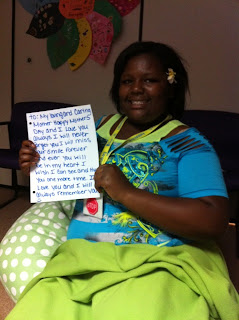 TO: My loving and Caring
Mother Happy Mothers
Day and I Love you
always I will never
forget you I will miss
your smile forever
and ever you will
be in my heart I
wish I can see and
you one more time. I
Love you and I will
always remember you